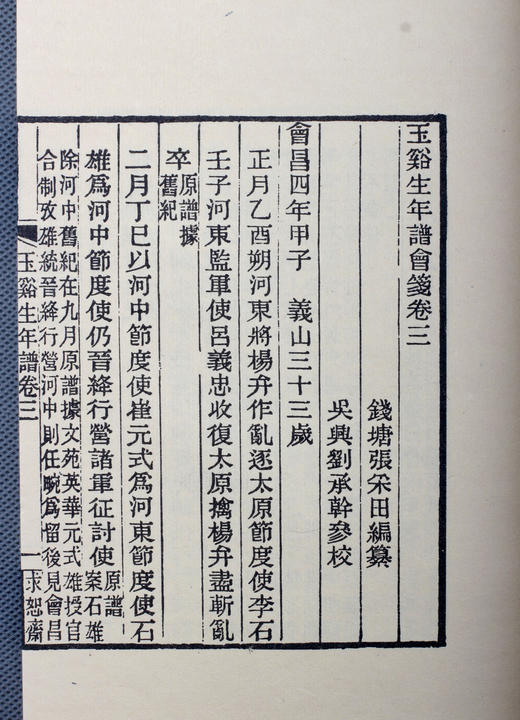 玉谿生年譜會箋卷三
錢塘張采田編纂
吳興劉承幹參校
會昌四年甲子 義山三十三歲
正月乙酉朔河東將楊弁作亂逐太原節度使李石
壬子河東監軍使呂義忠收復太原擒楊弁盡斬亂
卒原譜據
舊紀
二月丁巳以河中節度使崔元式爲河東節度使石
雄爲河中節度使仍晉絳行營諸軍征討使原譜
案石雄
除河中舊紀在九月原譜據文苑英華元式雄授官
合制攷雄統晉絳行營河中則任畹爲留後見會昌
玉谿生年譜卷三
一
求恕齋